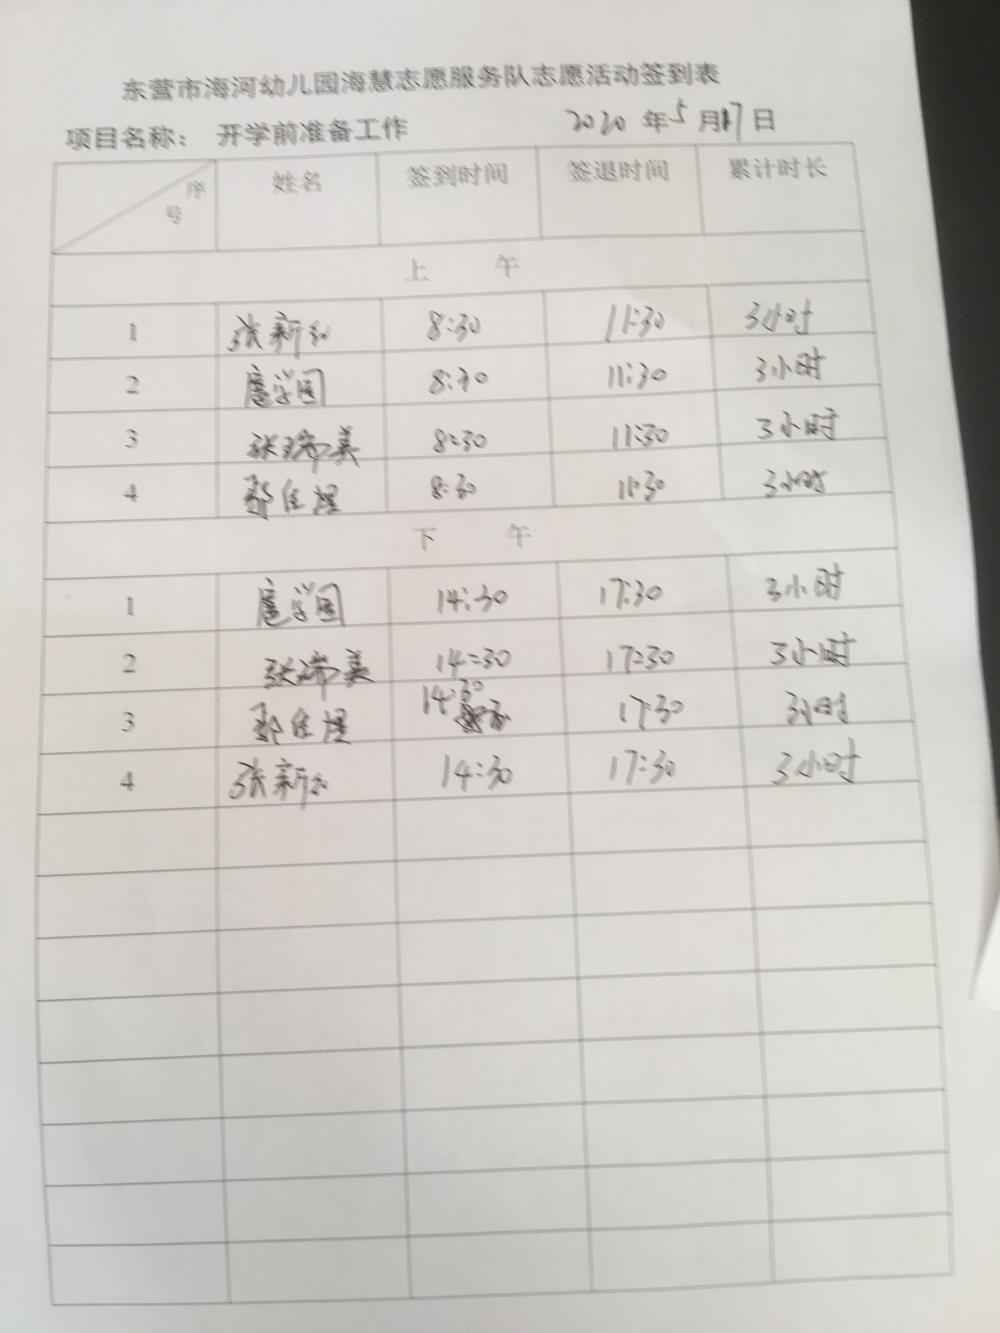 东营市海河幼儿园海慧志愿服务队志愿活动签到表
项目名称： 开学前准备工作 2020 年 5 月 17 日
序号 姓名 签到时间 签退时间 累计时长
上 午
1 张新红 8:30 11:30 3小时
2 扈学国 8:30 11:30 3小时
3 张瑞美 8:30 11:30 3小时
4 8:30 11:30 3小时
下 午
1 扈学国 14:30 17:30 3小时
2 张瑞美 14:30 17:30 3小时
3 14:30 17:30 3小时
4 张新红 14:30 17:30 3小时